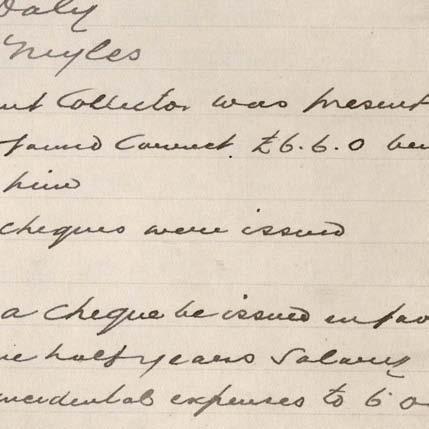 Daly
Myles
Collector was present
found Correct. £6.6.0
him
cheques were issued
a cheque be issued in
half years Salary
incidental expenses to 6